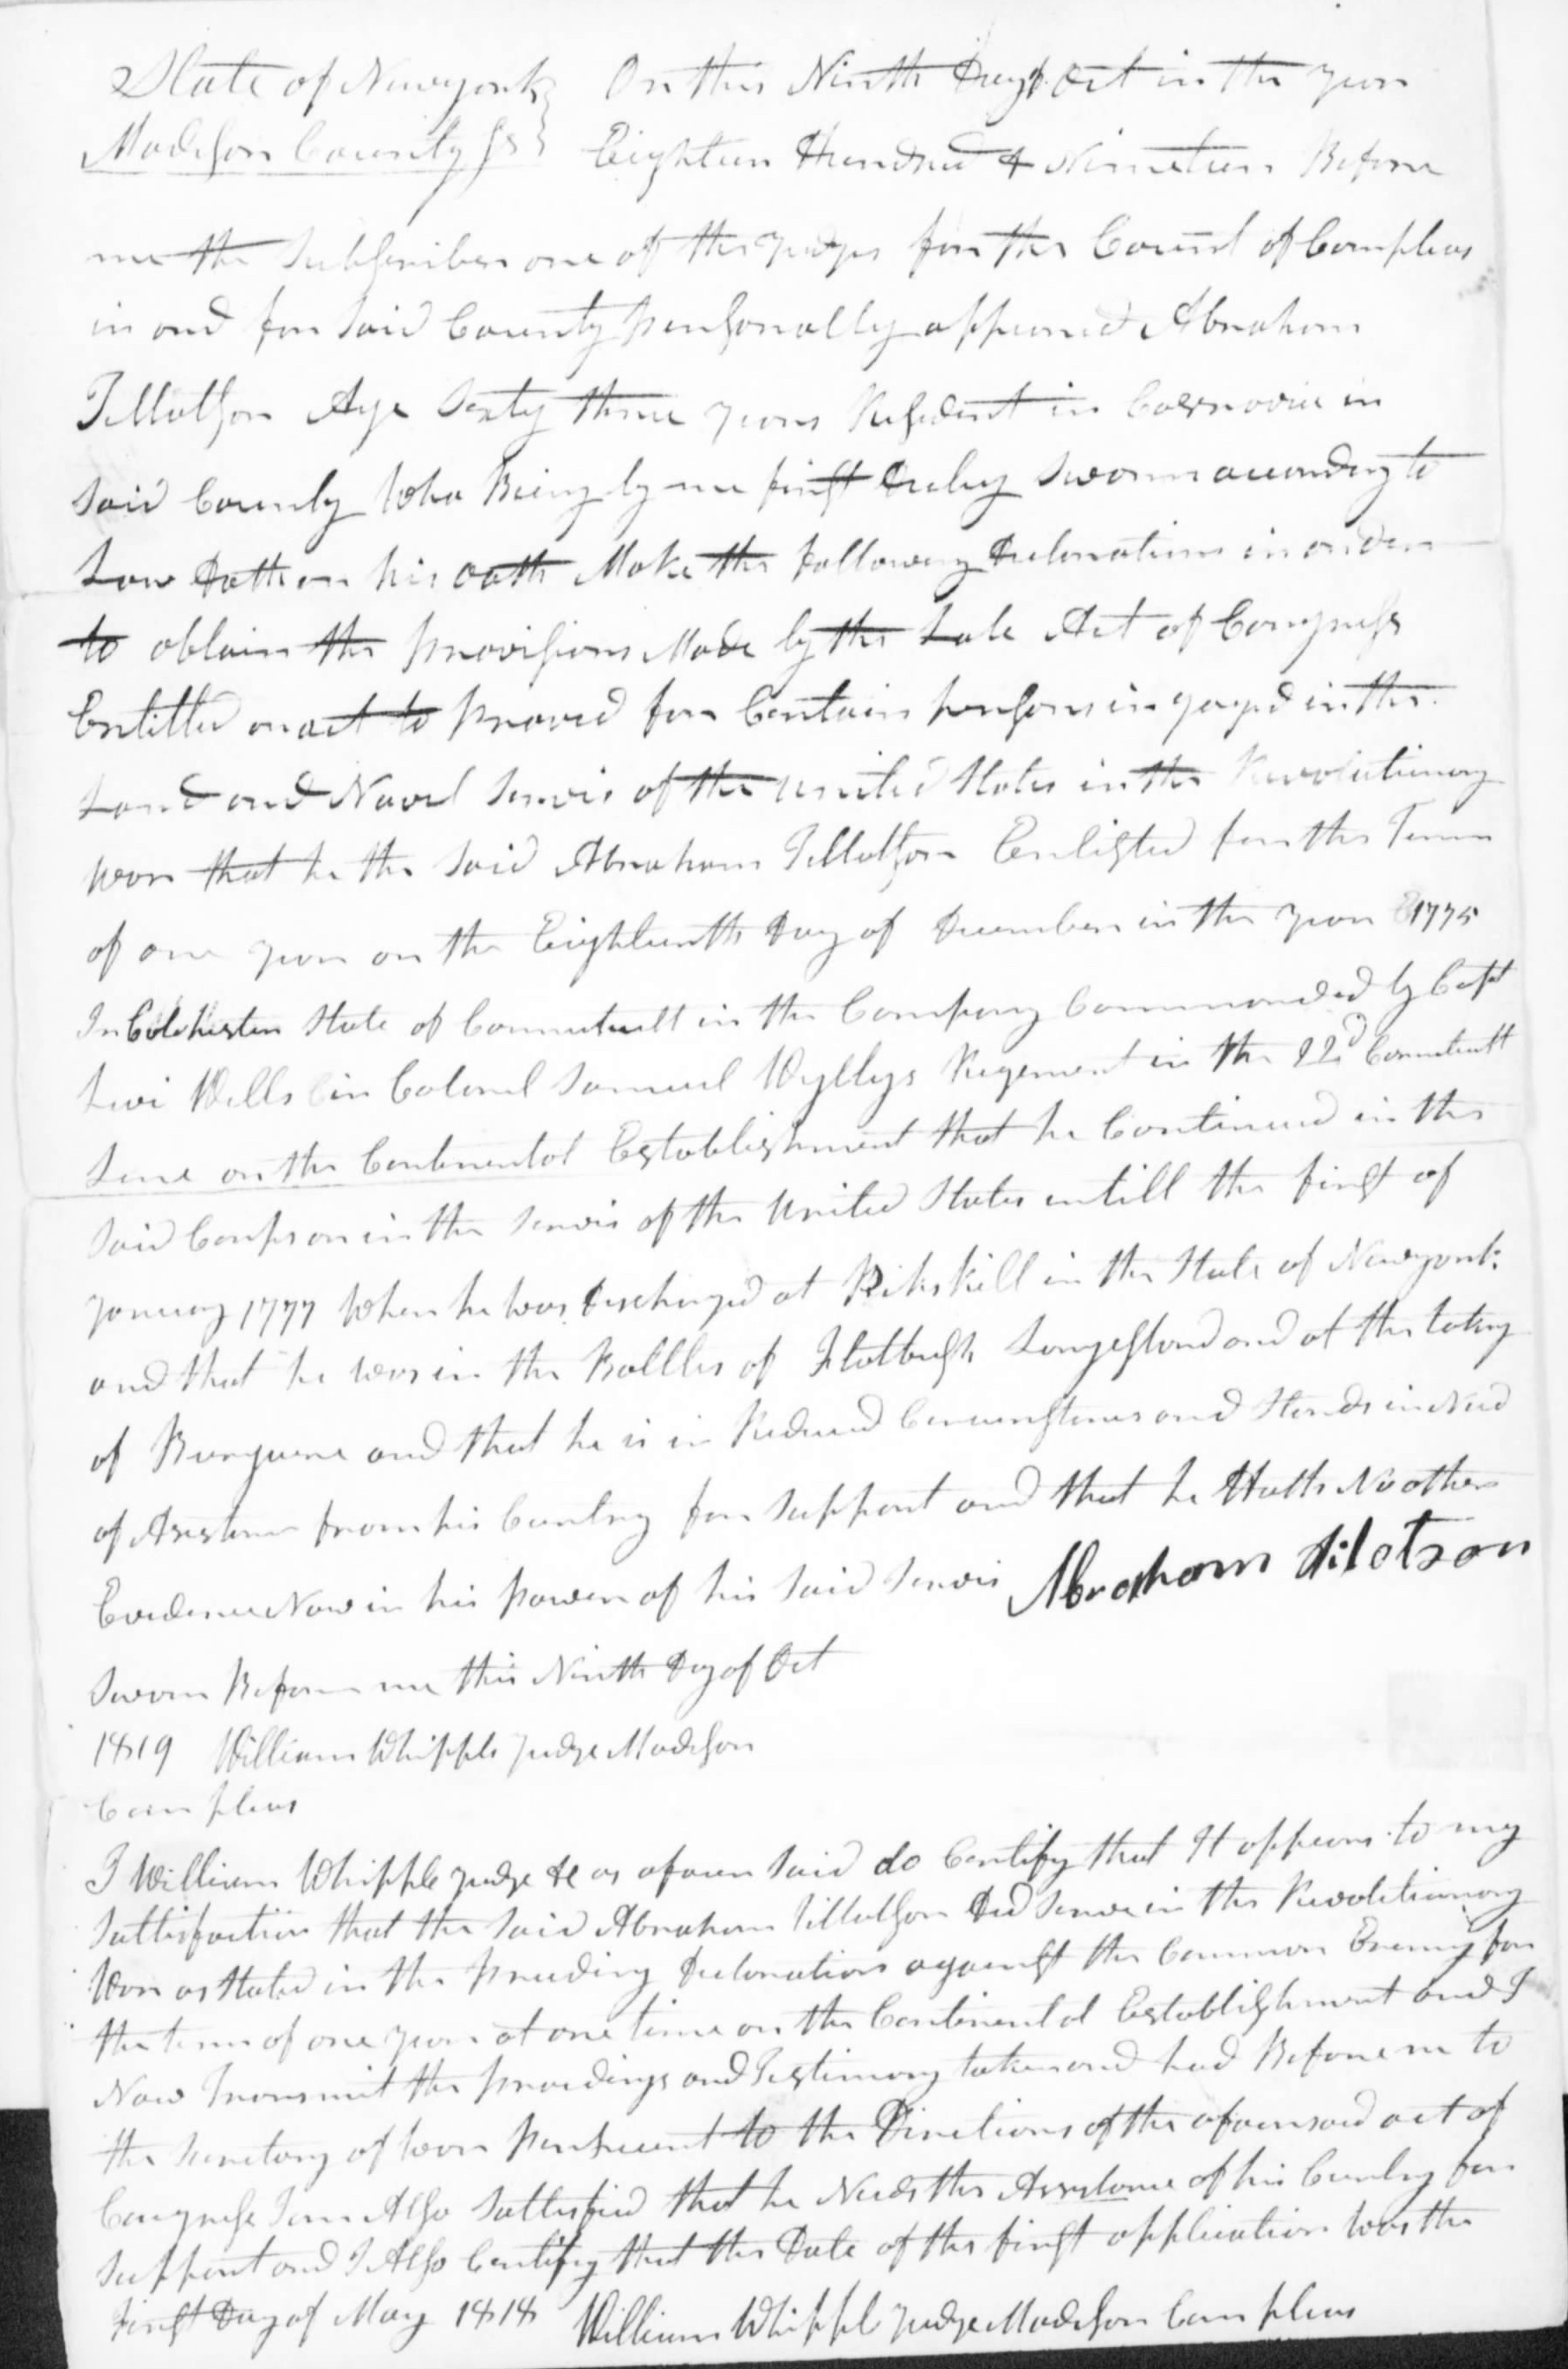 State of Newyork } On this Ninth Day of Oct in the year
Madison County Ss } Eighteen Hundred & Nineteen Before
me the Subscriber one of the Judges for the Court of Compleas
in and for said County personally appeared Abraham
Tillotson Age Sixty three years Resident in Casenovia in
said County Who Being by me first Duly Sworn according to
Law Doth on his oath Make the following Decleration in order
to obtain the provisions Made by the Late Act of Congress
Entitled an act to proved for Certain persons in gaged in the
Land and Naval Servis of the united States in the Revolutionary
war that he the said Abraham Tillotson Enlisted for the Term
of one year on the Eighteenth Day of December in the year 1775
In Colchester State of Connecticutt in the Company Commanded by Capt
Levi Wells in Colonel Samuel Wyllys Regement in the 22d Connecticutt
Line on the Continental Establishment that he Continued in the
said Corps or in the servis of the United States untill the first of
January 1777 When he was Discharged at Pikskill in the State of Newyork
and that he was in the Battles of Flatbush Longisland and at the taking
of Burguene and that he is in Reduced Circumstances and Stands in Need
of Asistance from his Cuntry for support and that he Hath No other
Evidence Now in his power of his said servis Abraham tilotson
Sworn Before me this Ninth Day of Oct
1819 William Whipple Judge Madison
Com pleas
I William Whipple Judge &c as afoursaid do Certify that It appears to my
Sattisfaction that the said Abraham Tillotson Did Serve in the Revolutionary
War as Stated in the preceding Decleration against the Common Enemy for
the term of one year at one time on the Continental Establishment and I
Now Transmit the procedings and Testimony taken and had Before me to
the Secretary of war persuent to the Directions of the afoursaid act of
Congress I am Also Sattisfied that he Needs the Assistance of his Cuntry for
support and I Also Certify that the Date of the first application was the
first Day of May 1818 William Whippl Judge Madison Com pleas